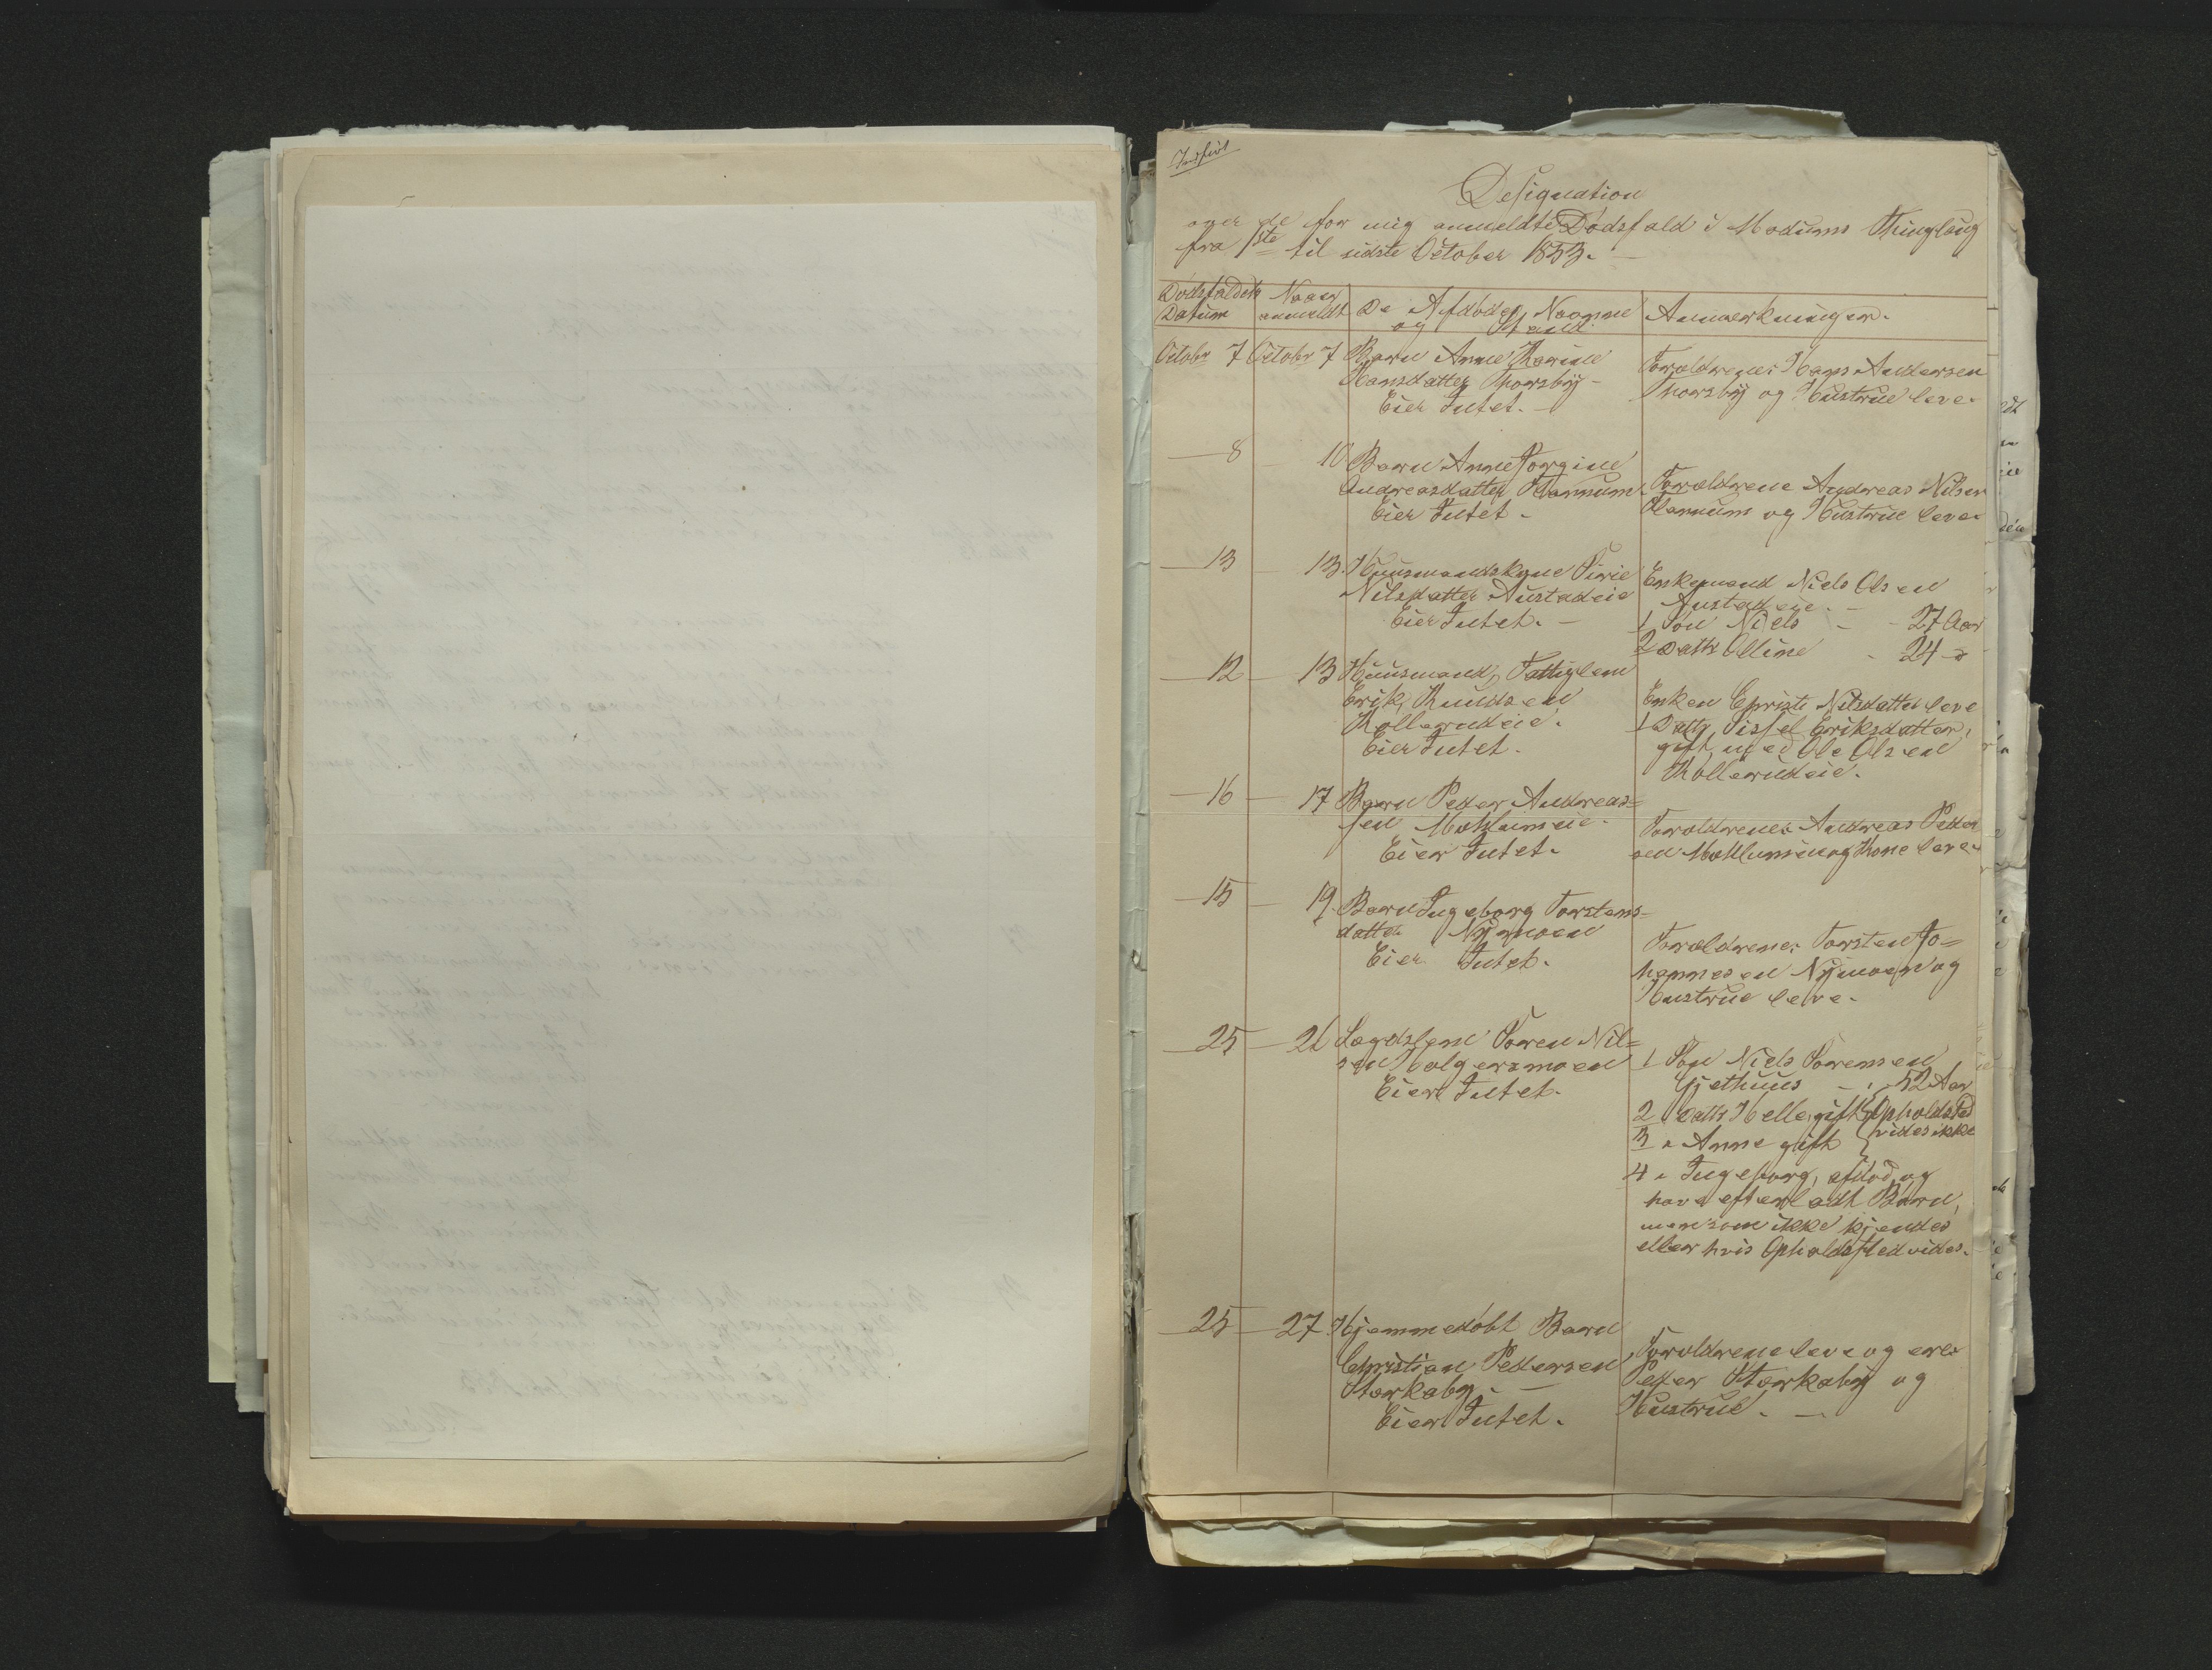 Indført
Designation
over de for mig anmeldte Dødsfald i Modums Thinglaug
fra 1ste til sidste October 1853.
Dødsfaldets
Datum
Naar
anmeldt
De Afdødes Navne
og Stand
Anmærkninger.
Octobr 7
Octobr 7
Barn Anne Karine
Hansdatter Thorsbÿ
Eier Intet.
Forældrene: Hans Andersen
Thorsbÿ og Hustrue leve.
8
10
Barn Anne Jorgine
Andreasdatter
Eier Intet.
Forældrene Andreas Nilsen
og Hustrue leve.
13
13.
Huusmandskone Siri
Nilsdatter Austadeie
Eier Intet.
Enkemand Niels Olsen
Austadeie.
1 Søn Niels - 27 Aar
2 Dattr Olline - 24 -
12
13
Huusmand, Fattiglem
Erik Knudsen
Kollerudeie.
Eier Intet.
Enken Christi Nilsdatter leve
1 Dattr Sissel Eriksdatter,
gift med Ole Olsen
Kollerudeie.
16
17
Barn Peder Andreas=
sen Mælumeie.
Eier Intet.
Forældrene: Andreas Peder
sen og Kone leve.
15
19
Barn Ingeborg Torstens=
datter Nÿmoen
Eier Intet.
Forældrene: Torsten Jo=
hannesen Nÿmoen og
Hustrue leve.
25
26
Lægdslem Søren Nil=
sen Holgersmoen
Eier Intet.
1 Søn Niels Sørensen
Gjethuus - 52 Aar
2 Dattr Helle, gift Opholdsted
3 " Anne gift vides ikke
4 " Ingeborg, afdød, og
have efterladt Børn,
men som ikke kjendes
eller hvis Opholdssted vides.
25
27
Hjemmedøbt Barn
Christian Pedersen
Størkebÿ.
Eier Intet.
Forældrene leve og ere:
Peder Størkebÿ og
Hustrue.